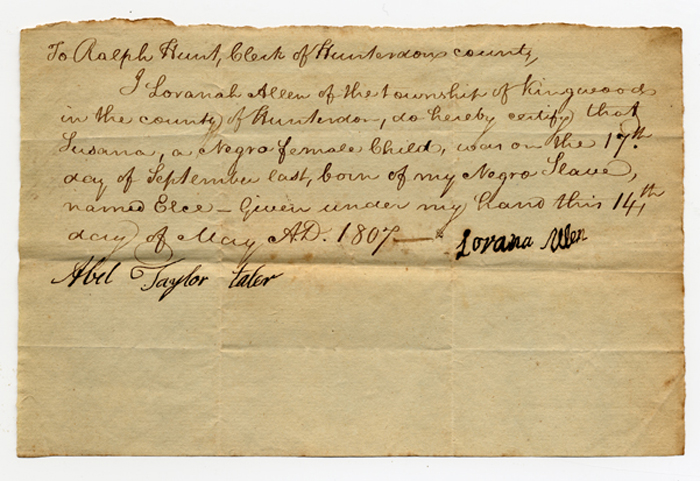 To Ralph Hunt, Clerk of Hunterdon county,
I Lovanah Allen of the township of Kingwood
in the county of Hunterdon, do hereby certify that
Susana, a Negro female Child, was on the 17th
day of September last, born of my Negro Slave,
named Elce – Given under my hand this 14th
day of May A.D. 1807 – Lovana Allen
Abel Taylor